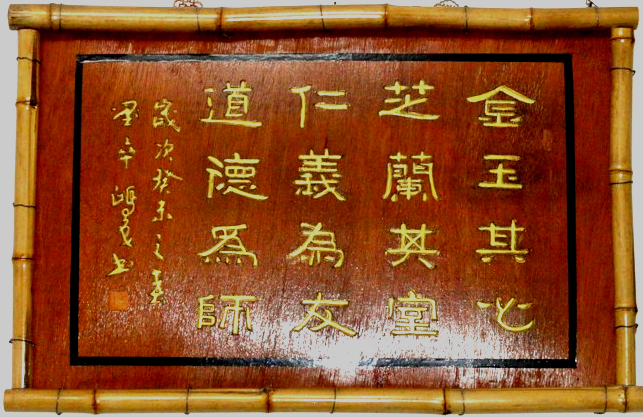 金玉其心
芝蘭其堂
仁義為友
道德為師
歲次癸未之春
鴻書